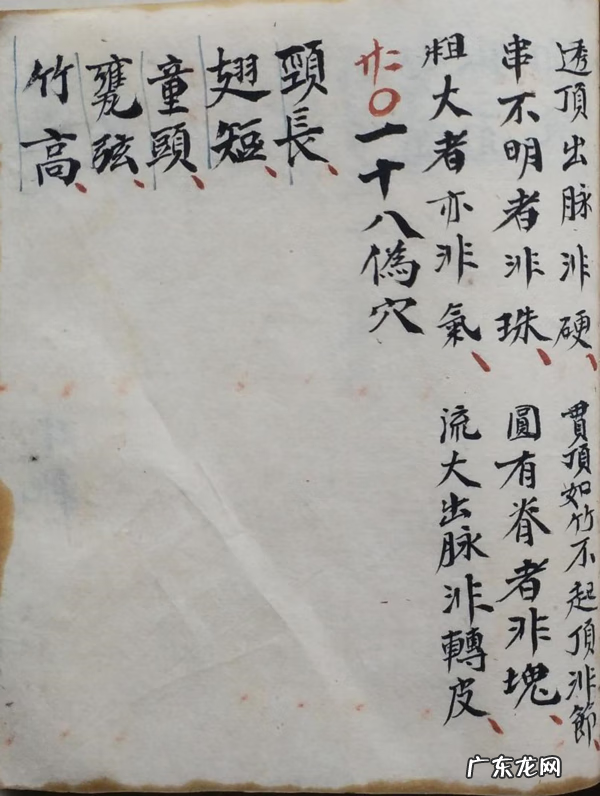 透頂出脉非硬、貫頂如竹不起頂非節、
串不明者非珠、圓有脊者非塊、
粗大者亦非氣、流大出脉非轉皮、
廿二〇一十八僞穴
頸長、
翅短、
童頭、
甕弦、
竹高、
广东龙网